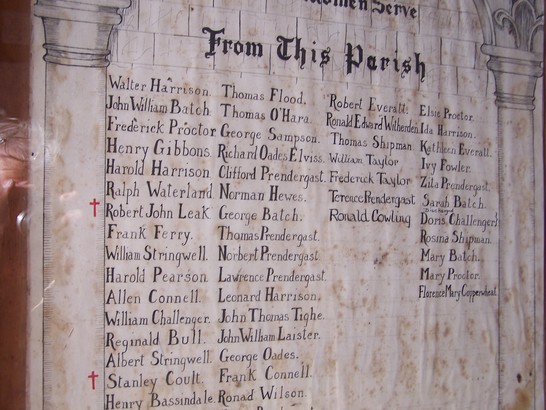 Serve
From This Parish
Walter Harrison.
John William Batch
Frederick Proctor
Henry Gibbons
Harold Harrison
Ralph Waterland
† Robert John Leak
Frank Ferry.
William Stringwell.
Harold Pearson.
Allen Connell.
William Challenger.
Reginald Bull.
Albert Stringwell.
† Stanley Coult.
Henry Bassindale
Thomas Flood.
Thomas O'Hara.
George Sampson.
Richard Oades Elviss.
Clifford Prendergast.
Norman Hewes.
George Batch.
Thomas Prendergast.
Norbert Prendergast
Lawrence Prendergast.
Leonard Harrison.
John Thomas Tighe.
John William Laister.
George Oades.
Frank Connell.
Ronad Wilson.
Robert Everatt.
Ronald Edward Witherden
Thomas Shipman.
William Taylor
Frederick Taylor
Terence Prendergast
Ronald Cowling
Elsie Proctor.
Ida Harrison.
Kathleen Everatt.
Ivy Fowler.
Zita Prendergast.
Sarah Batch.
Doris Challenger
Rosina Shipman.
Mary Batch.
Mary Procter.
Florence Mary Copperwheat